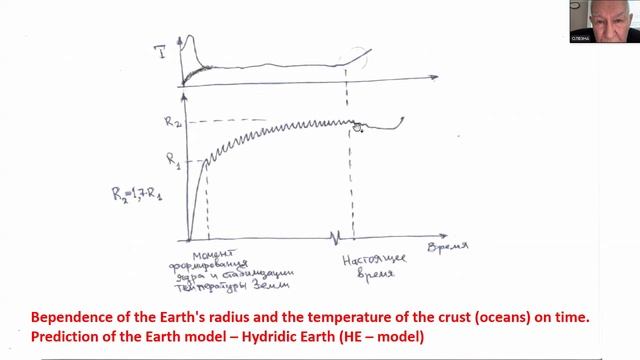 T
R₂
R₁
R₂=1,7·R₁
Время
Момент
формирования
ядра и стабилизации
температуры Земли
Настоящее
время
Bependence of the Earth's radius and the temperature of the crust (oceans) on time.
Prediction of the Earth model – Hydridic Earth (HE – model)